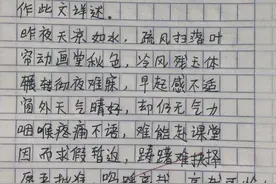 作此文详述。
昨夜天凉如水，疏风扫落叶
帘动画堂秋色，冷风残玉体
辗转彻夜难寐，早起感不适
窗外天气晴好，却仍无气力
咽喉疼痛不语，难能赴课堂
因而求假暂返，踌躇难抉择